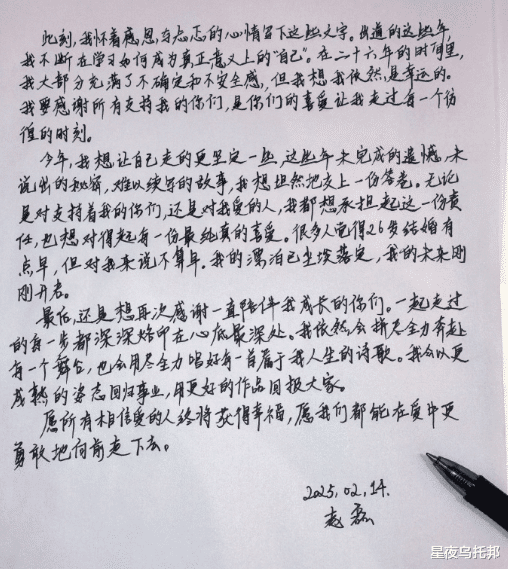 此刻,我怀着感恩,与忐忑的心情留下这些文字。出道的这些年,
我不断在学习如何成为真正意义上的“自己”。在二十六年的时间里,
我大部分充满了不确定和不安全感,但我想我依然是幸运的。
我要感谢所有支持我的你们,是你们的喜爱让我走过每一个彷
徨的时刻。
今年,我想让自己走的更坚定一些,这些年未完成的遗憾,未
说出的秘密,难以续写的故事,我想坦然把交上一份答卷。无论
是对支持着我的你们,还是对我爱的人,我都想承担起这一份责
任,也想对得起每一份最纯真的喜爱。很多人觉得26岁结婚有
点早,但对我来说不算早。我的漂泊已尘埃落定,我的未来刚
刚开启。
最后,还是想再次感谢一直陪伴我成长的你们。一起走过
的每一步都深深烙印在心底最深处。我依然会拼尽全力奔赴
每一个舞台,也会用尽全力唱好每一首属于我人生的诗歌。我会以更
成熟的姿态回归事业,用更好的作品回报大家。
愿所有相信爱的人终将获得幸福,愿我们都能在爱中更
勇敢地向前走下去。
2025.02.14.
赵磊
星夜乌托邦